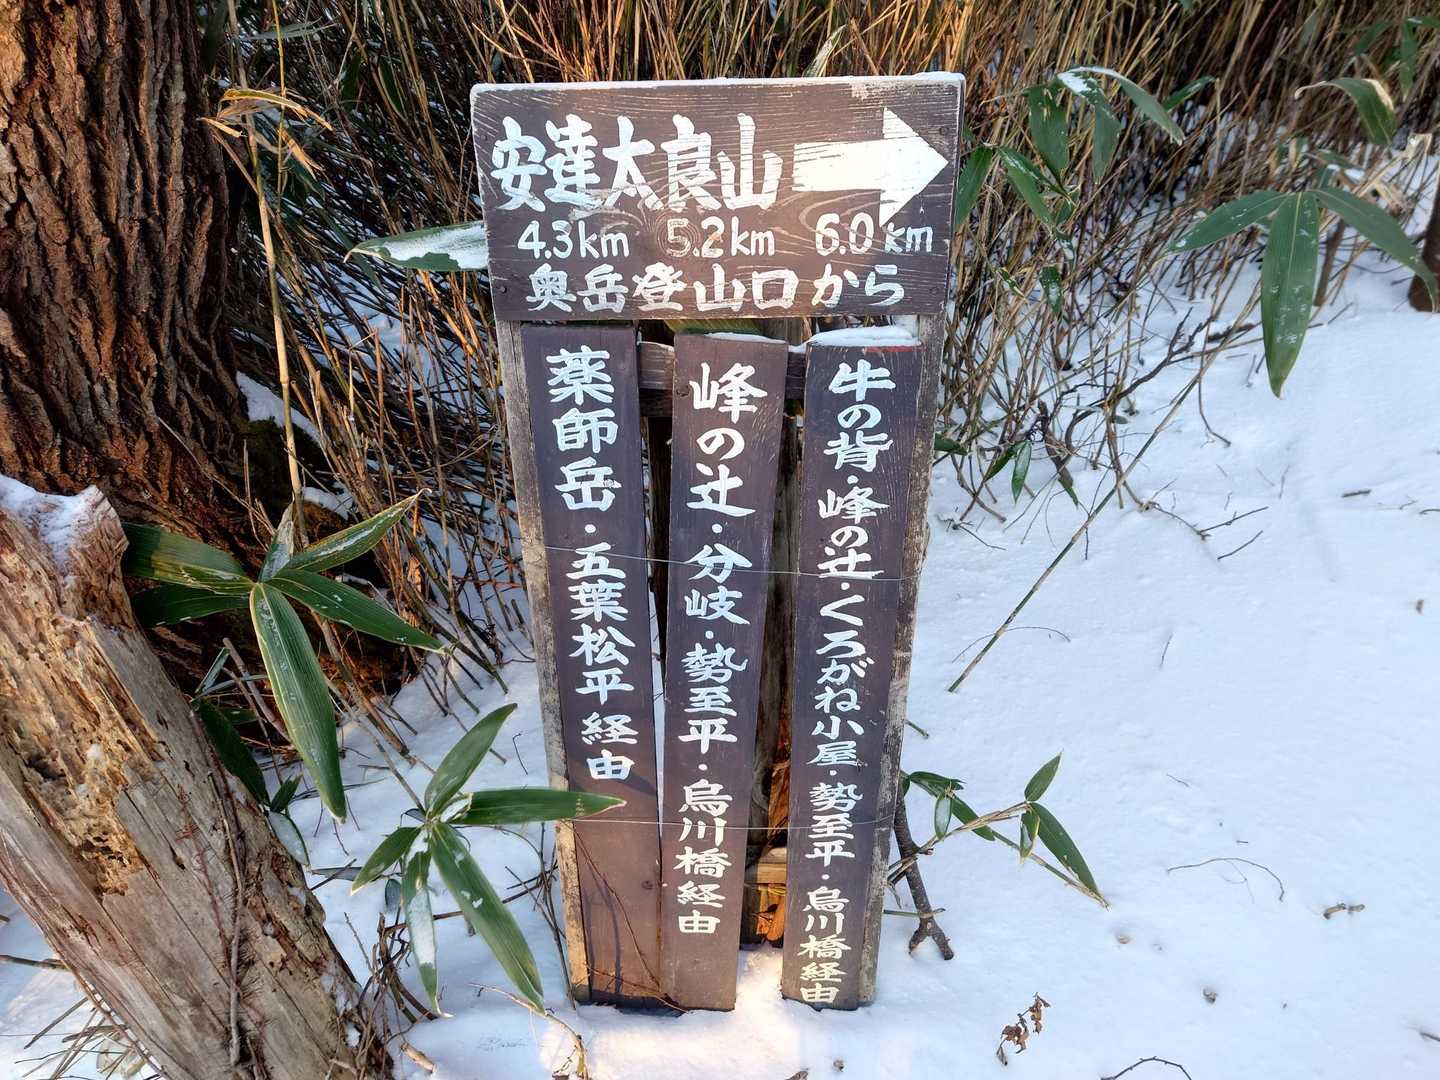 安達太良山
4.3km 5.2km 6.0km
奥岳登山口から
薬師岳・五葉松平経由
峰の辻・分岐・勢至平・烏川橋経由
牛の背・峰の辻・くろがね小屋・勢至平・烏川橋経由